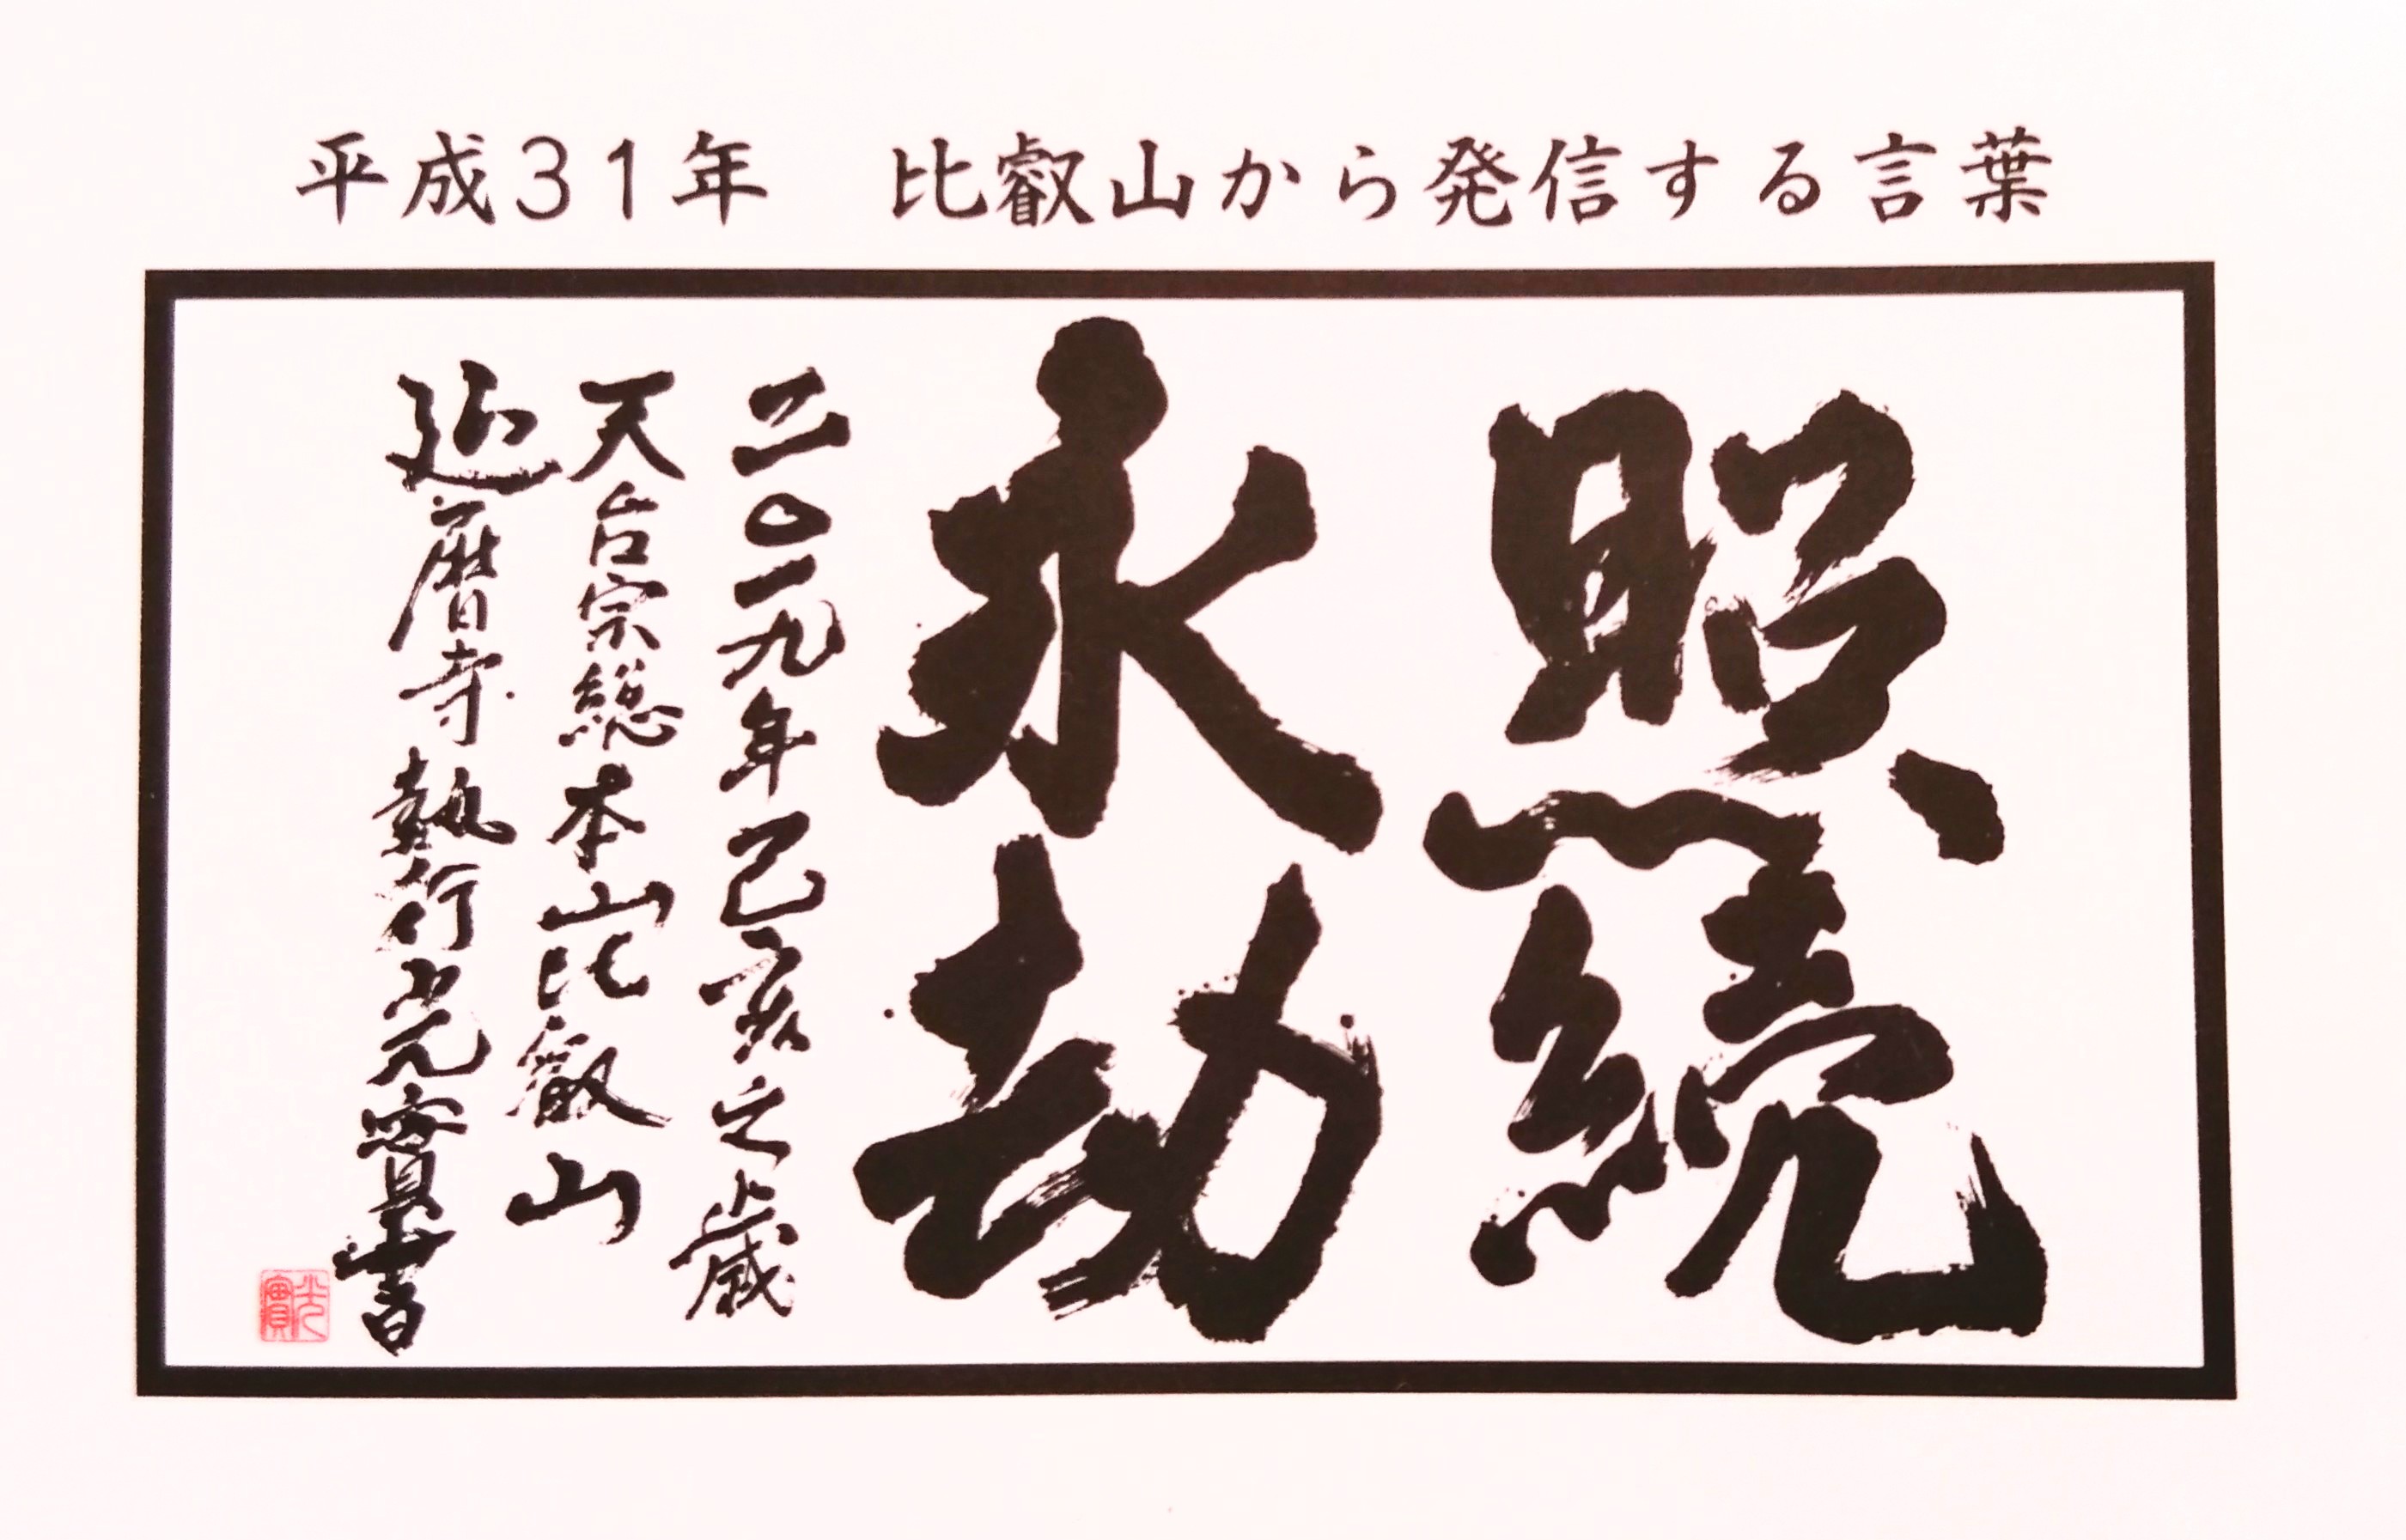 平成31年　比叡山から発信する言葉
照続
永劫
二〇一九年己亥之歳
天台宗総本山比叡山
延暦寺執行光實書
光實